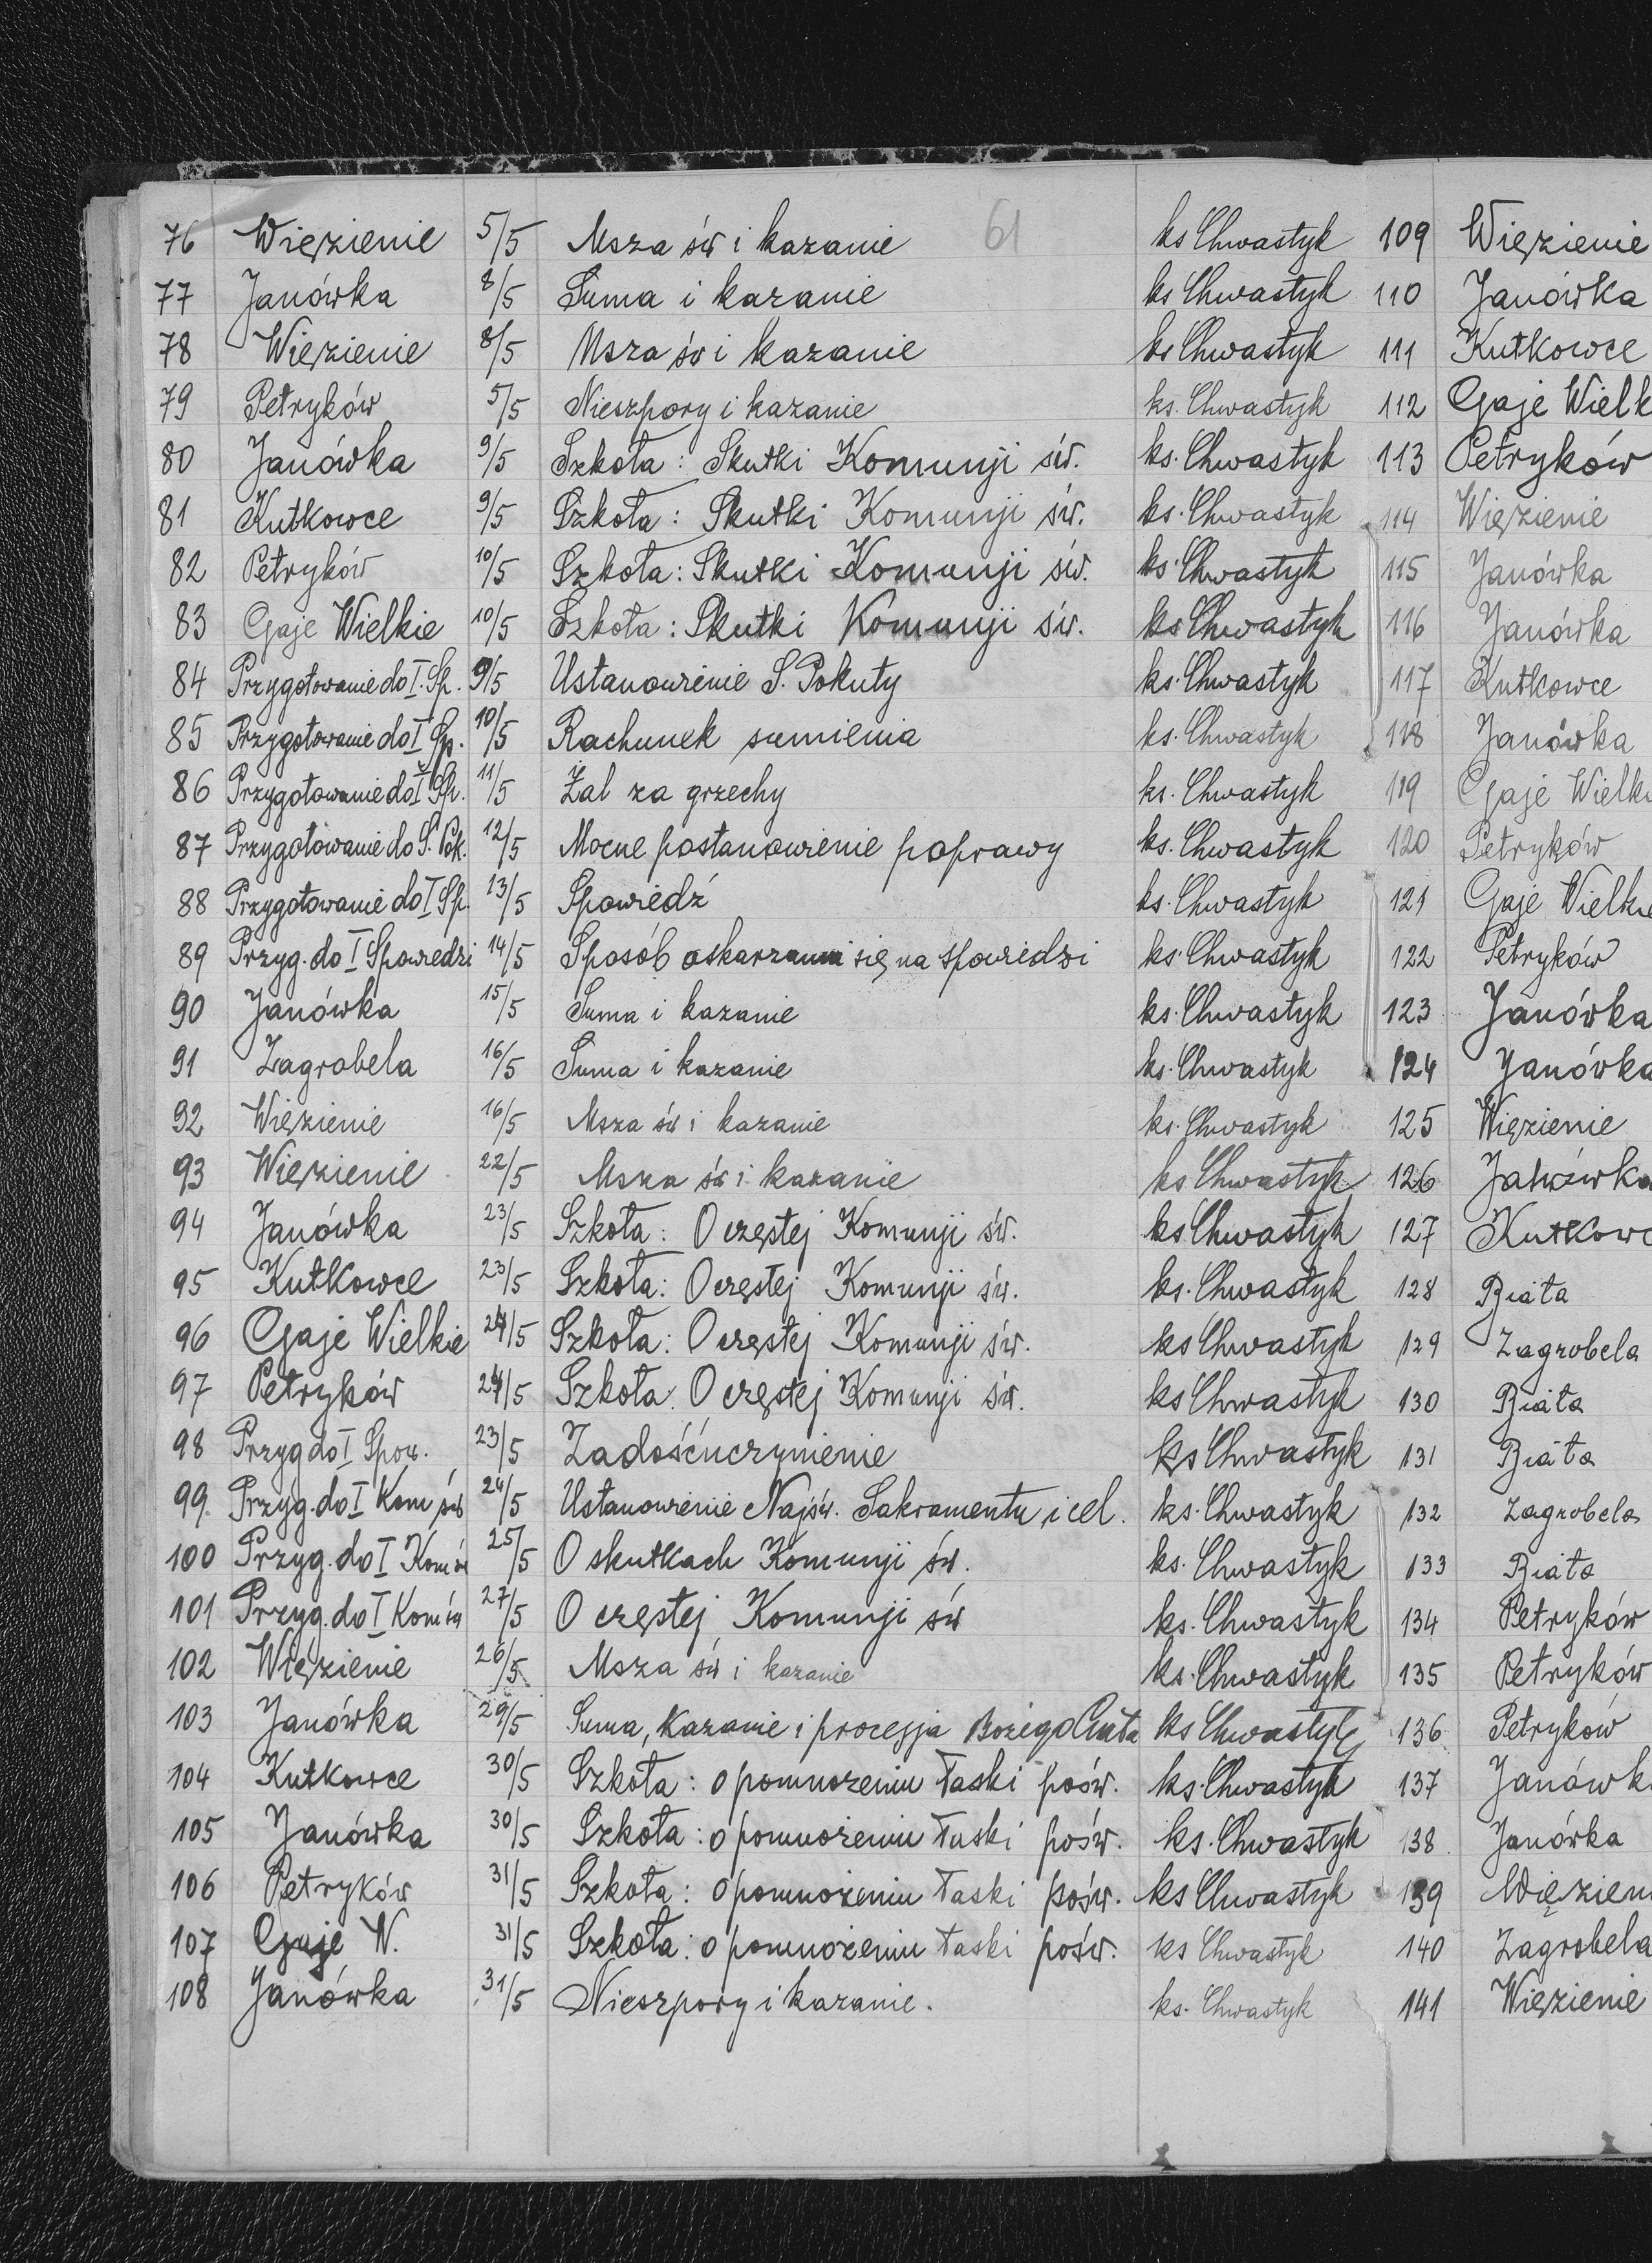 61
76 Więzienie 5/5 Msza św i kazanie ks Chwastyk
77 Janówka 8/5 Suma i kazanie ks Chwastyk
78 Więzienie 8/5 Msza św i kazanie ks Chwastyk
79 Petryków 5/5 Nieszpory i kazanie ks. Chwastyk
80 Janówka 9/5 Szkoła: Skutki Komunji św. ks. Chwastyk
81 Kutkowce 9/5 Szkoła: Skutki Komunji św. ks. Chwastyk
82 Petryków 10/5 Szkoła: Skutki Komunji św. ks. Chwastyk
83 Gaje Wielkie 10/5 Szkoła: Skutki Komunji św. ks Chwastyk
84 Przygotowanie do I. Sp. 9/5 Ustanowienie S. Pokuty ks. Chwastyk
85 Przygotowanie do I Sp. 10/5 Rachunek sumienia ks. Chwastyk
86 Przygotowanie do I Sp. 11/5 Żal za grzechy ks. Chwastyk
87 Przygotowanie do S. Pok. 12/5 Mocne postanowienie poprawy ks. Chwastyk
88 Przygotowanie do I Sp. 13/5 Spowiedź ks. Chwastyk
89 Przyg. do I Spowiedzi 14/5 Sposób oskarzania się na spowiedzi ks. Chwastyk
90 Janówka 15/5 Suma i kazanie ks. Chwastyk
91 Zagrobela 16/5 Suma i kazanie ks. Chwastyk
92 Więzienie 16/5 Msza św i kazanie ks. Chwastyk
93 Więzienie 22/5 Msza św i kazanie ks Chwastyk
94 Janówka 23/5 Szkoła: O częstej Komunji św. ks Chwastyk
95 Kutkowce 23/5 Szkoła: O częstej Komunji św. ks. Chwastyk
96 Gaje Wielkie 24/5 Szkoła: O częstej Komunji św. ks Chwastyk
97 Petryków 24/5 Szkoła. O częstej Komunji św. ks Chwastyk
98 Przyg do I Spow. 23/5 Zadośćuczynienie ks Chwastyk
99. Przyg. do I Kom św 24/5 Ustanowienie Najśw. Sakramentu i cel. ks. Chwastyk
100 Przyg. do I Kom św 25/5 O skutkach Komunji św. ks. Chwastyk
101 Przyg. do I Kom św 27/5 O częstej Komunji św ks. Chwastyk
102 Więzienie 26/5 Msza św i kazanie ks. Chwastyk
103 Janówka 29/5 Suma, Kazanie i procesja Bożego Ciała ks Chwastyk
104 Kutkowce 30/5 Szkoła: o pomnożeniu łaski pośw. ks. Chwastyk
105 Janówka 30/5 Szkoła: o pomnożeniu łaski pośw. ks. Chwastyk
106 Petryków 31/5 Szkoła: o pomnożeniu łaski pośw. ks Chwastyk
107 Gaje W. 31/5 Szkoła: o pomnożeniu łaski pośw. ks Chwastyk
108 Janówka 31/5 Nieszpory i kazanie. ks. Chwastyk
109 Więzienie
110 Janówka
111 Kutkowce
112 Gaje Wielk
113 Petryków
114 Więzienie
115 Janówka
116 Janówka
117 Kutkowce
118 Janówka
119 Gaje Wielki
120 Petryków
121 Gaje Wielkie
122 Petryków
123 Janówka
124 Janówka
125 Więzienie
126 Janówka
127 Kutkowc
128 Biała
129 Zagrobela
130 Biała
131 Biała
132 Zagrobela
133 Biała
134 Petryków
135 Petryków
136 Petryków
137 Janówk
138 Janówka
139 Więzien
140 Zagrobela
141 Więzienie